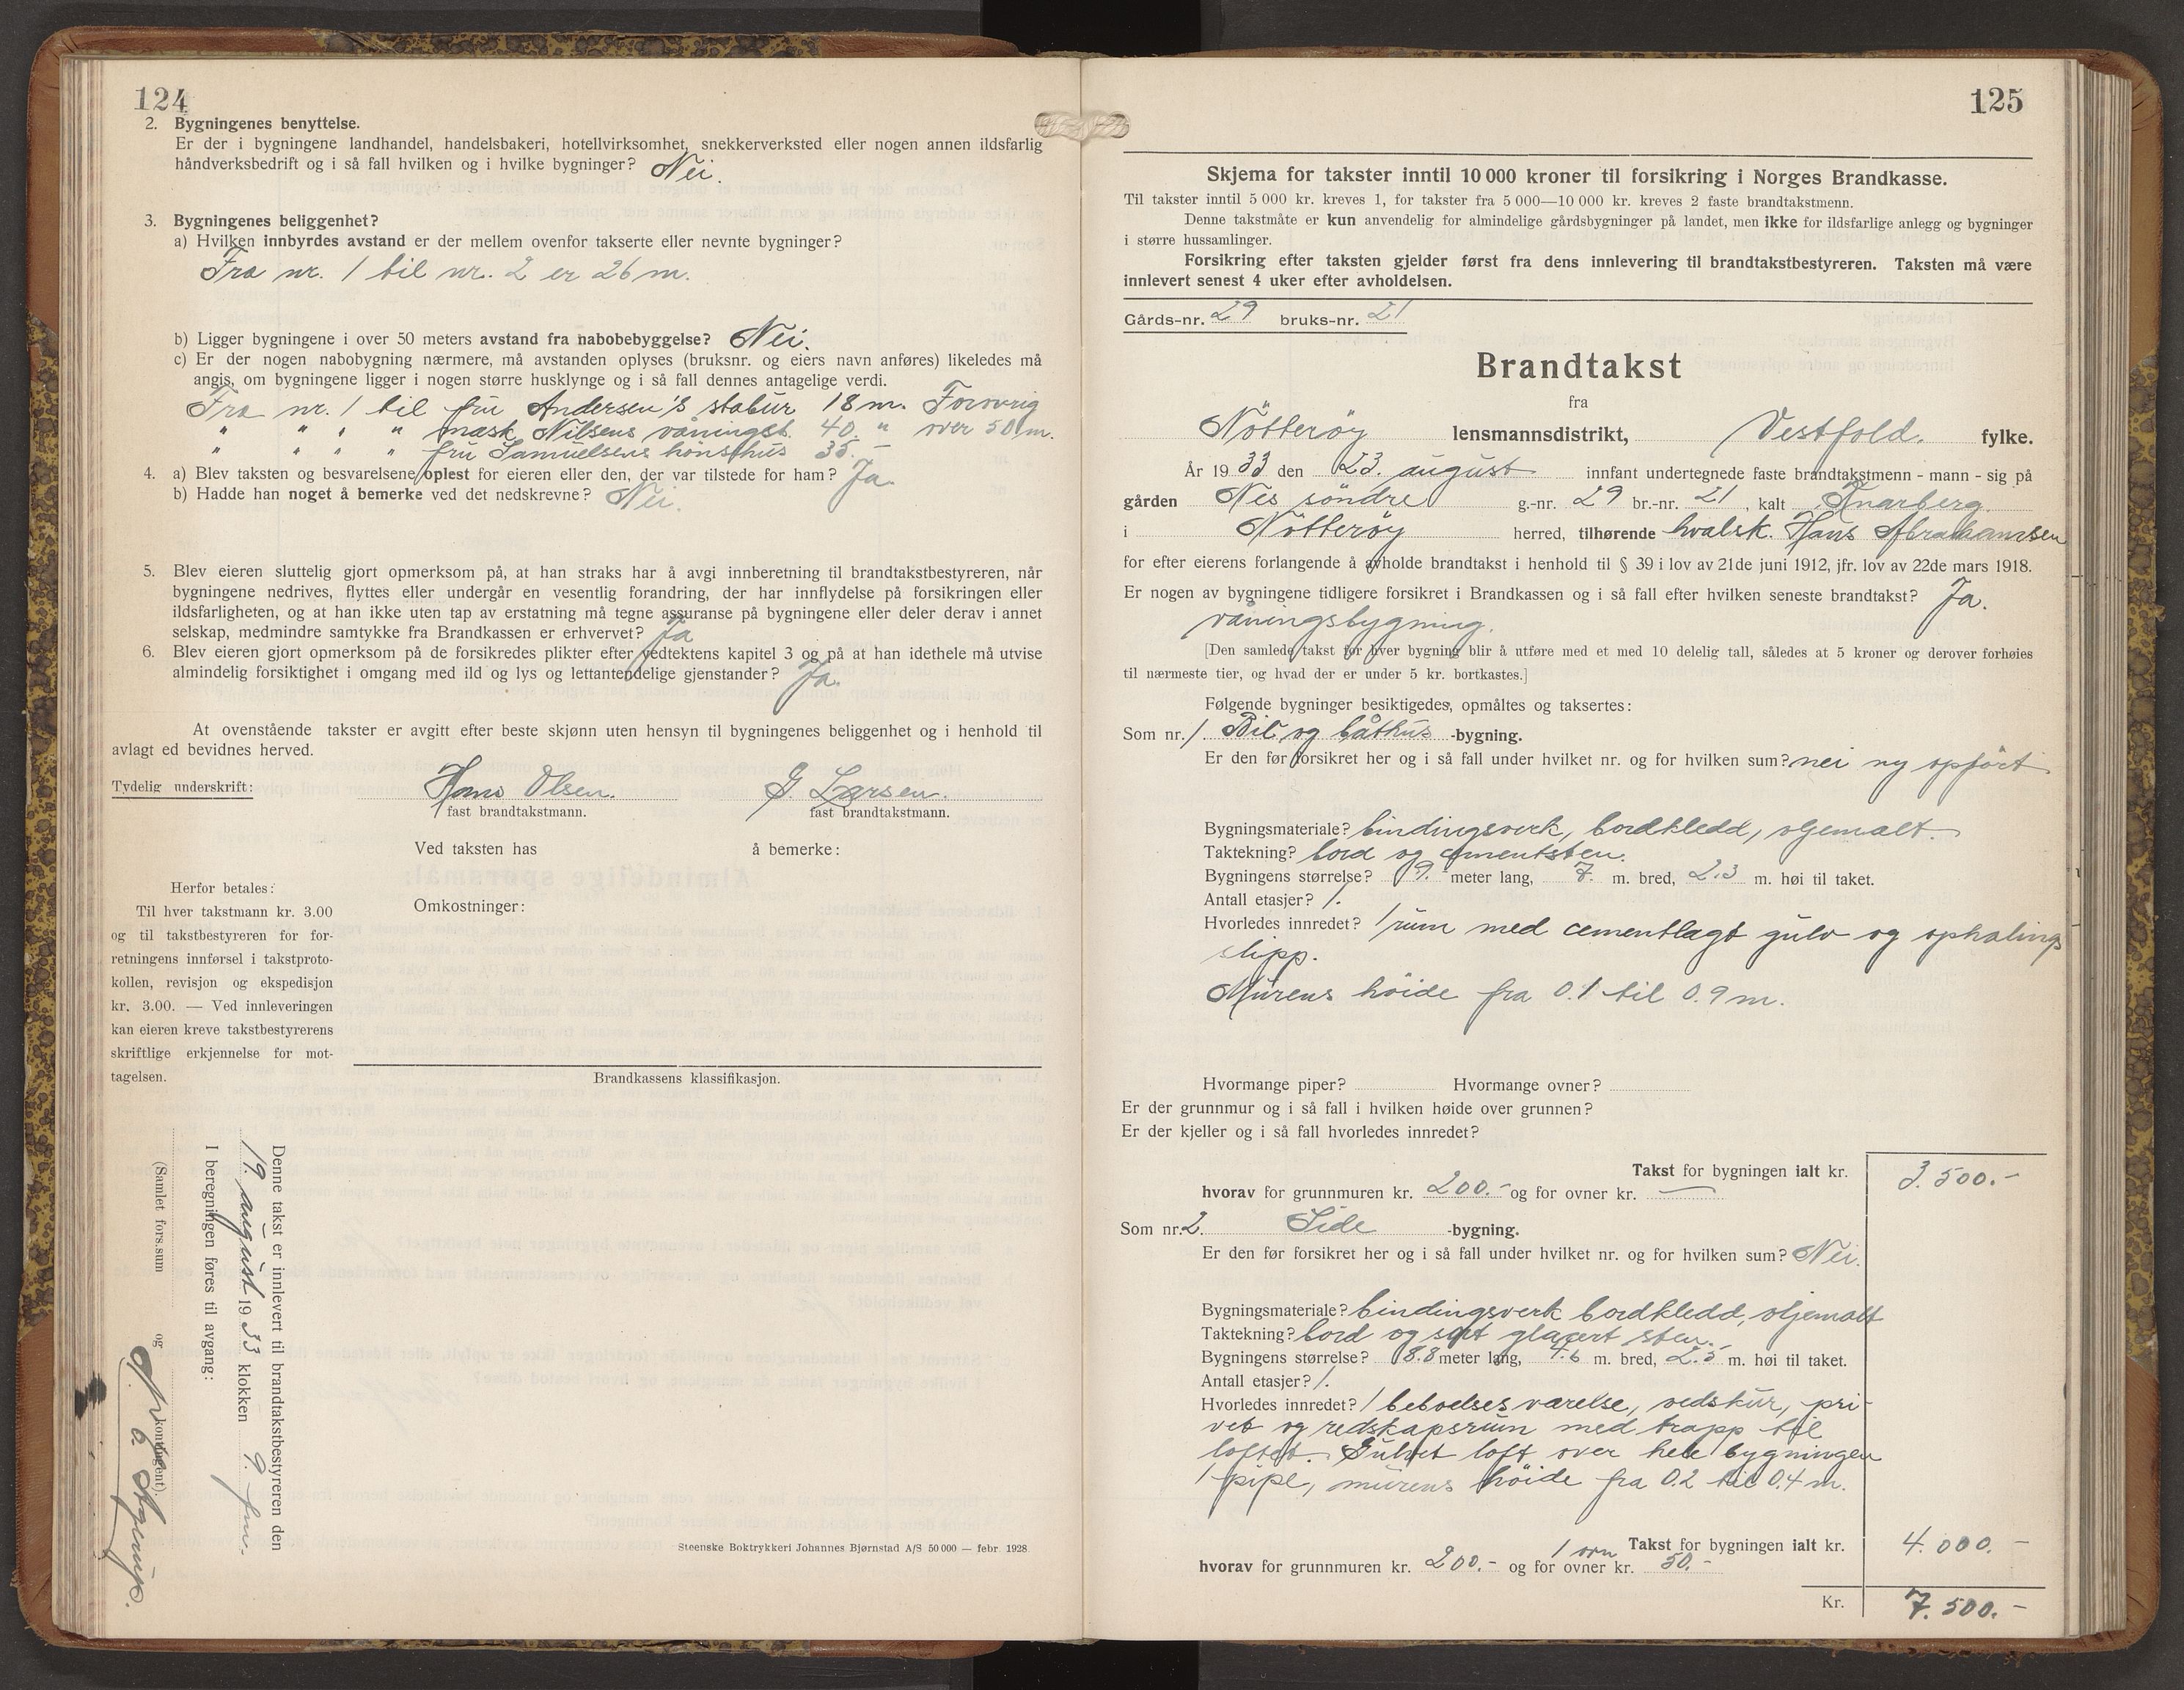 124
2. Bygningenes benyttelse.
Er der i bygningene landhandel, handelsbakeri, hotellvirksomhet, snekkerverksted eller nogen annen ildsfarlig
håndverksbedrift og i så fall hvilken og i hvilke bygninger? Nei.
3. Bygningenes beliggenhet?
a) Hvilken innbyrdes avstand er der mellem ovenfor takserte eller nevnte bygninger?
Fra nr. 1 til nr. 2 er 26 m.
b) Ligger bygningene i over 50 meters avstand fra nabobebyggelse? Nei.
c) Er der nogen nabobygning nærmere, må avstanden oplyses (bruksnr. og eiers navn anføres) likeledes må
angis, om bygningene ligger i nogen større husklynge og i så fall dennes antagelige verdi.
Fra nr. 1 til fru Andersen's stabur 18 m. Forøvrig
" " " " mask. Nilsens våningsb. 40. " over 50 m.
" " " " fru Samuelsens hønsehus 35. –
4. a) Blev taksten og besvarelsene oplest for eieren eller den, der var tilstede for ham? Ja.
b) Hadde han noget å bemerke ved det nedskrevne? Nei.
5. Blev eieren sluttelig gjort opmerksom på, at han straks har å avgi innberetning til brandtakstbestyreren, når
bygningene nedrives, flyttes eller undergår en vesentlig forandring, der har innflydelse på forsikringen eller
ildsfarligheten, og at han ikke uten tap av erstatning må tegne assuranse på bygningene eller deler derav i annet
selskap, medmindre samtykke fra Brandkassen er erhvervet? Ja
6. Blev eieren gjort opmerksom på de forsikredes plikter efter vedtektens kapitel 3 og på at han idethele må utvise
almindelig forsiktighet i omgang med ild og lys og lettantendelige gjenstander? Ja.
At ovenstående takster er avgitt efter beste skjønn uten hensyn til bygningenes beliggenhet og i henhold til
avlagt ed bevidnes herved.
Tydelig underskrift: Hans Olsen. G. Larsen.
fast brandtakstmann. fast brandtakstmann.
Ved taksten has å bemerke:
Omkostninger:
Herfor betales:
Til hver takstmann kr. 3.00
og til takstbestyreren for for-
retningens innførsel i takstproto-
kollen, revisjon og ekspedisjon
kr. 3.00. — Ved innleveringen
kan eieren kreve takstbestyrerens
skriftlige erkjennelse for mot-
tagelsen.
Brandkassens klassifikasjon.
Denne takst er innlevert til brandtakstbestyreren den
19. august 1933 klokken 9. fm.
I beregningen føres til avgang:
(Samlet fors.sum og kontingent).
Steenske Boktrykkeri Johannes Bjørnstad A/S 50 000 — febr. 1928.
125
Skjema for takster inntil 10 000 kroner til forsikring i Norges Brandkasse.
Til takster inntil 5 000 kr. kreves 1, for takster fra 5 000—10 000 kr. kreves 2 faste brandtakstmenn.
Denne takstmåte er kun anvendelig for almindelige gårdsbygninger på landet, men ikke for ildsfarlige anlegg og bygninger
i større hussamlinger.
Forsikring efter taksten gjelder først fra dens innlevering til brandtakstbestyreren. Taksten må være
innlevert senest 4 uker efter avholdelsen.
Gårds-nr. 29 bruks-nr. 21
Brandtakst
fra
Nötteröy lensmannsdistrikt, Vestfold. fylke.
År 1933 den 23. august innfant undertegnede faste brandtakstmenn - mann - sig på
gården Nes söndre g.-nr. 29 br.-nr. 21, kalt Knarberg.
i Nötteröy herred, tilhørende hvalsk. Hans Abrahamsen
for efter eierens forlangende å avholde brandtakst i henhold til § 39 i lov av 21de juni 1912, jfr. lov av 22de mars 1918.
Er nogen av bygningene tidligere forsikret i Brandkassen og i så fall efter hvilken seneste brandtakst? Ja.
våningsbygning.
[Den samlede takst for hver bygning blir å utføre med et med 10 delelig tall, således at 5 kroner og derover forhøies
til nærmeste tier, og hvad der er under 5 kr. bortkastes.]
Følgende bygninger besiktigedes, opmåltes og taksertes:
Som nr. 1. Bil og båthus -bygning.
Er den før forsikret her og i så fall under hvilket nr. og for hvilken sum? nei ny opfört
Bygningsmateriale? bindingsverk, bordkledd, oljemalt.
Taktekning? bord og cementsten.
Bygningens størrelse? 9. meter lang, 7. m. bred, 2.3 m. høi til taket.
Antall etasjer? 1.
Hvorledes innredet? 1 rum med cementlagt gulv og ophalings
slipp.
Murens höide fra 0.1 til 0.9 m.
Hvormange piper? Hvormange ovner?
Er der grunnmur og i så fall i hvilken høide over grunnen?
Er der kjeller og i så fall hvorledes innredet?
Takst for bygningen ialt kr. 3.500.-
hvorav for grunnmuren kr. 200.- og for ovner kr. —
Som nr. 2. Side -bygning.
Er den før forsikret her og i så fall under hvilket nr. og for hvilken sum? Nei.
Bygningsmateriale? bindingsverk bordkledd, oljemalt
Taktekning? bord og sort glacert sten.
Bygningens størrelse? 8.8 meter lang, 4.6 m. bred, 2.5 m. høi til taket.
Antall etasjer? 1.
Hvorledes innredet? 1 beboelsesværelse, vedskur, pri-
vet og redskapsrum med trapp til
loftet. Gulvet loft over hele bygningen
1 pipe, murens höide fra 0.2 til 0.4 m.
Takst for bygningen ialt kr. 4.000.-
hvorav for grunnmuren kr. 200.- og for 1 ovn ovner kr. 50.-
Kr. 7.500.-